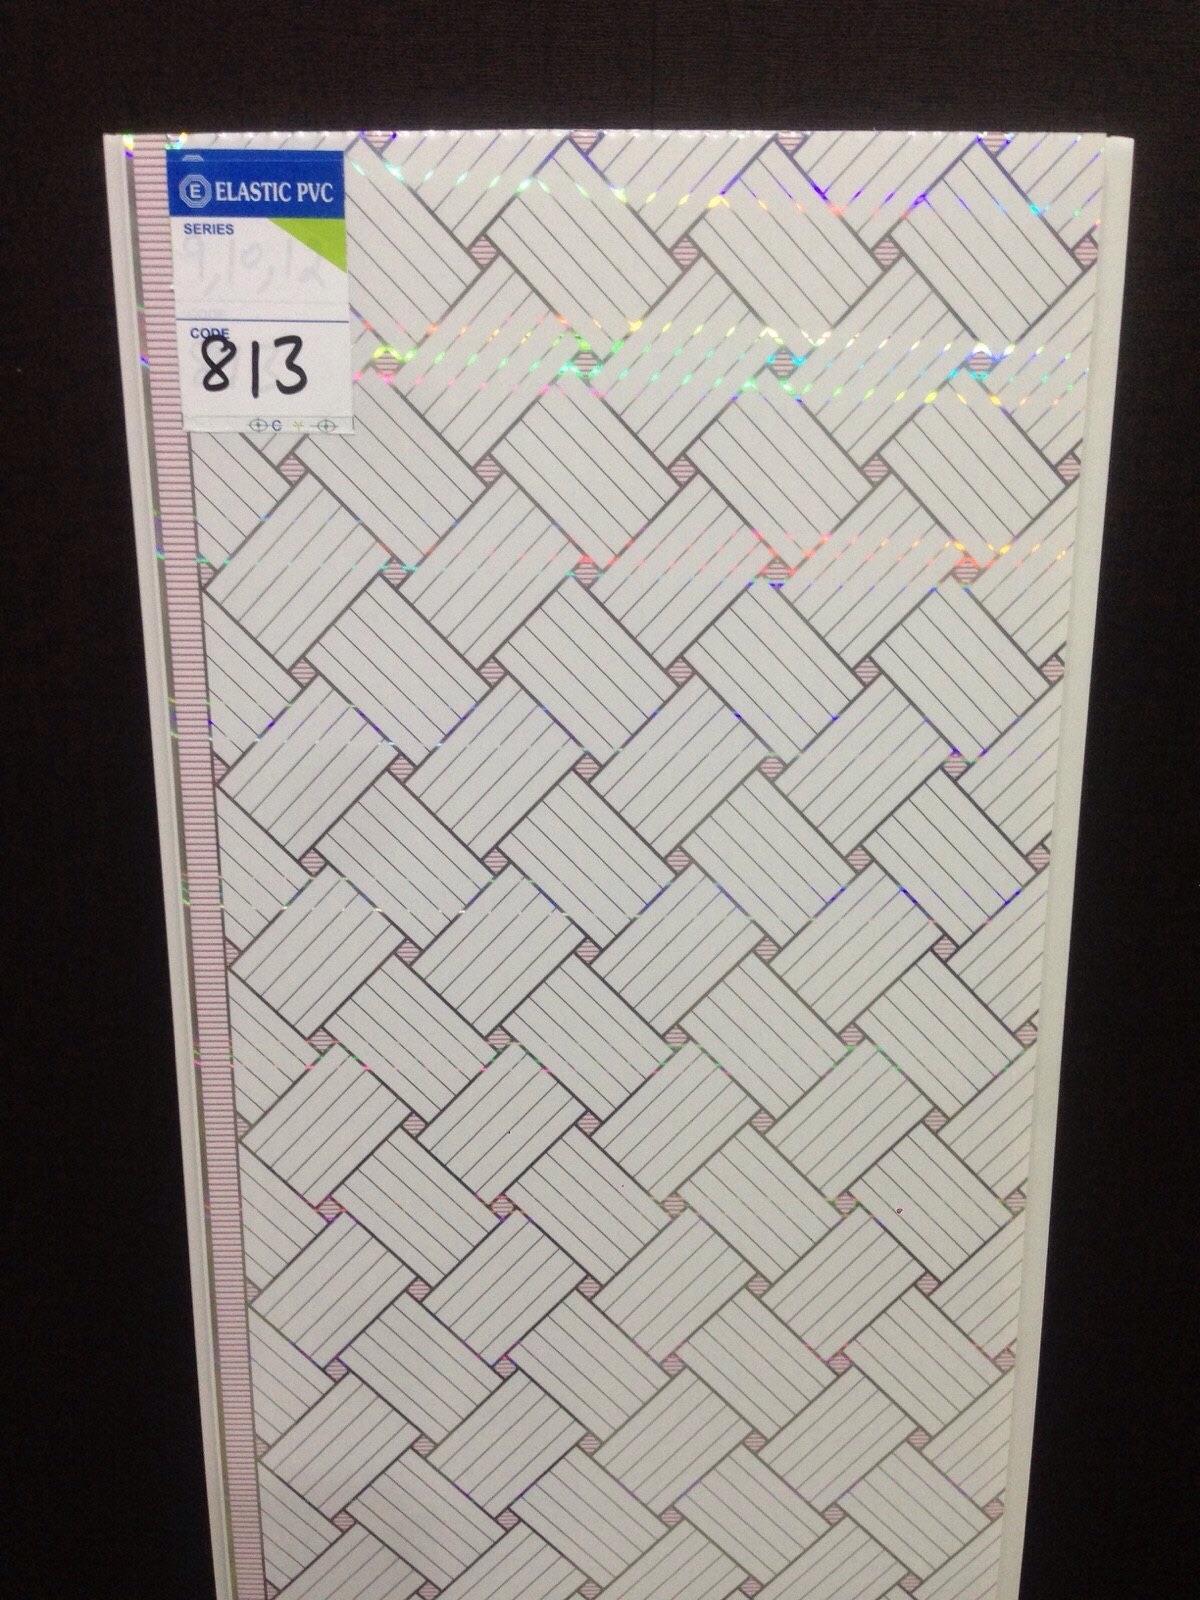 E ELASTIC PVC
SERIES
9,10,12
CODE
813
C